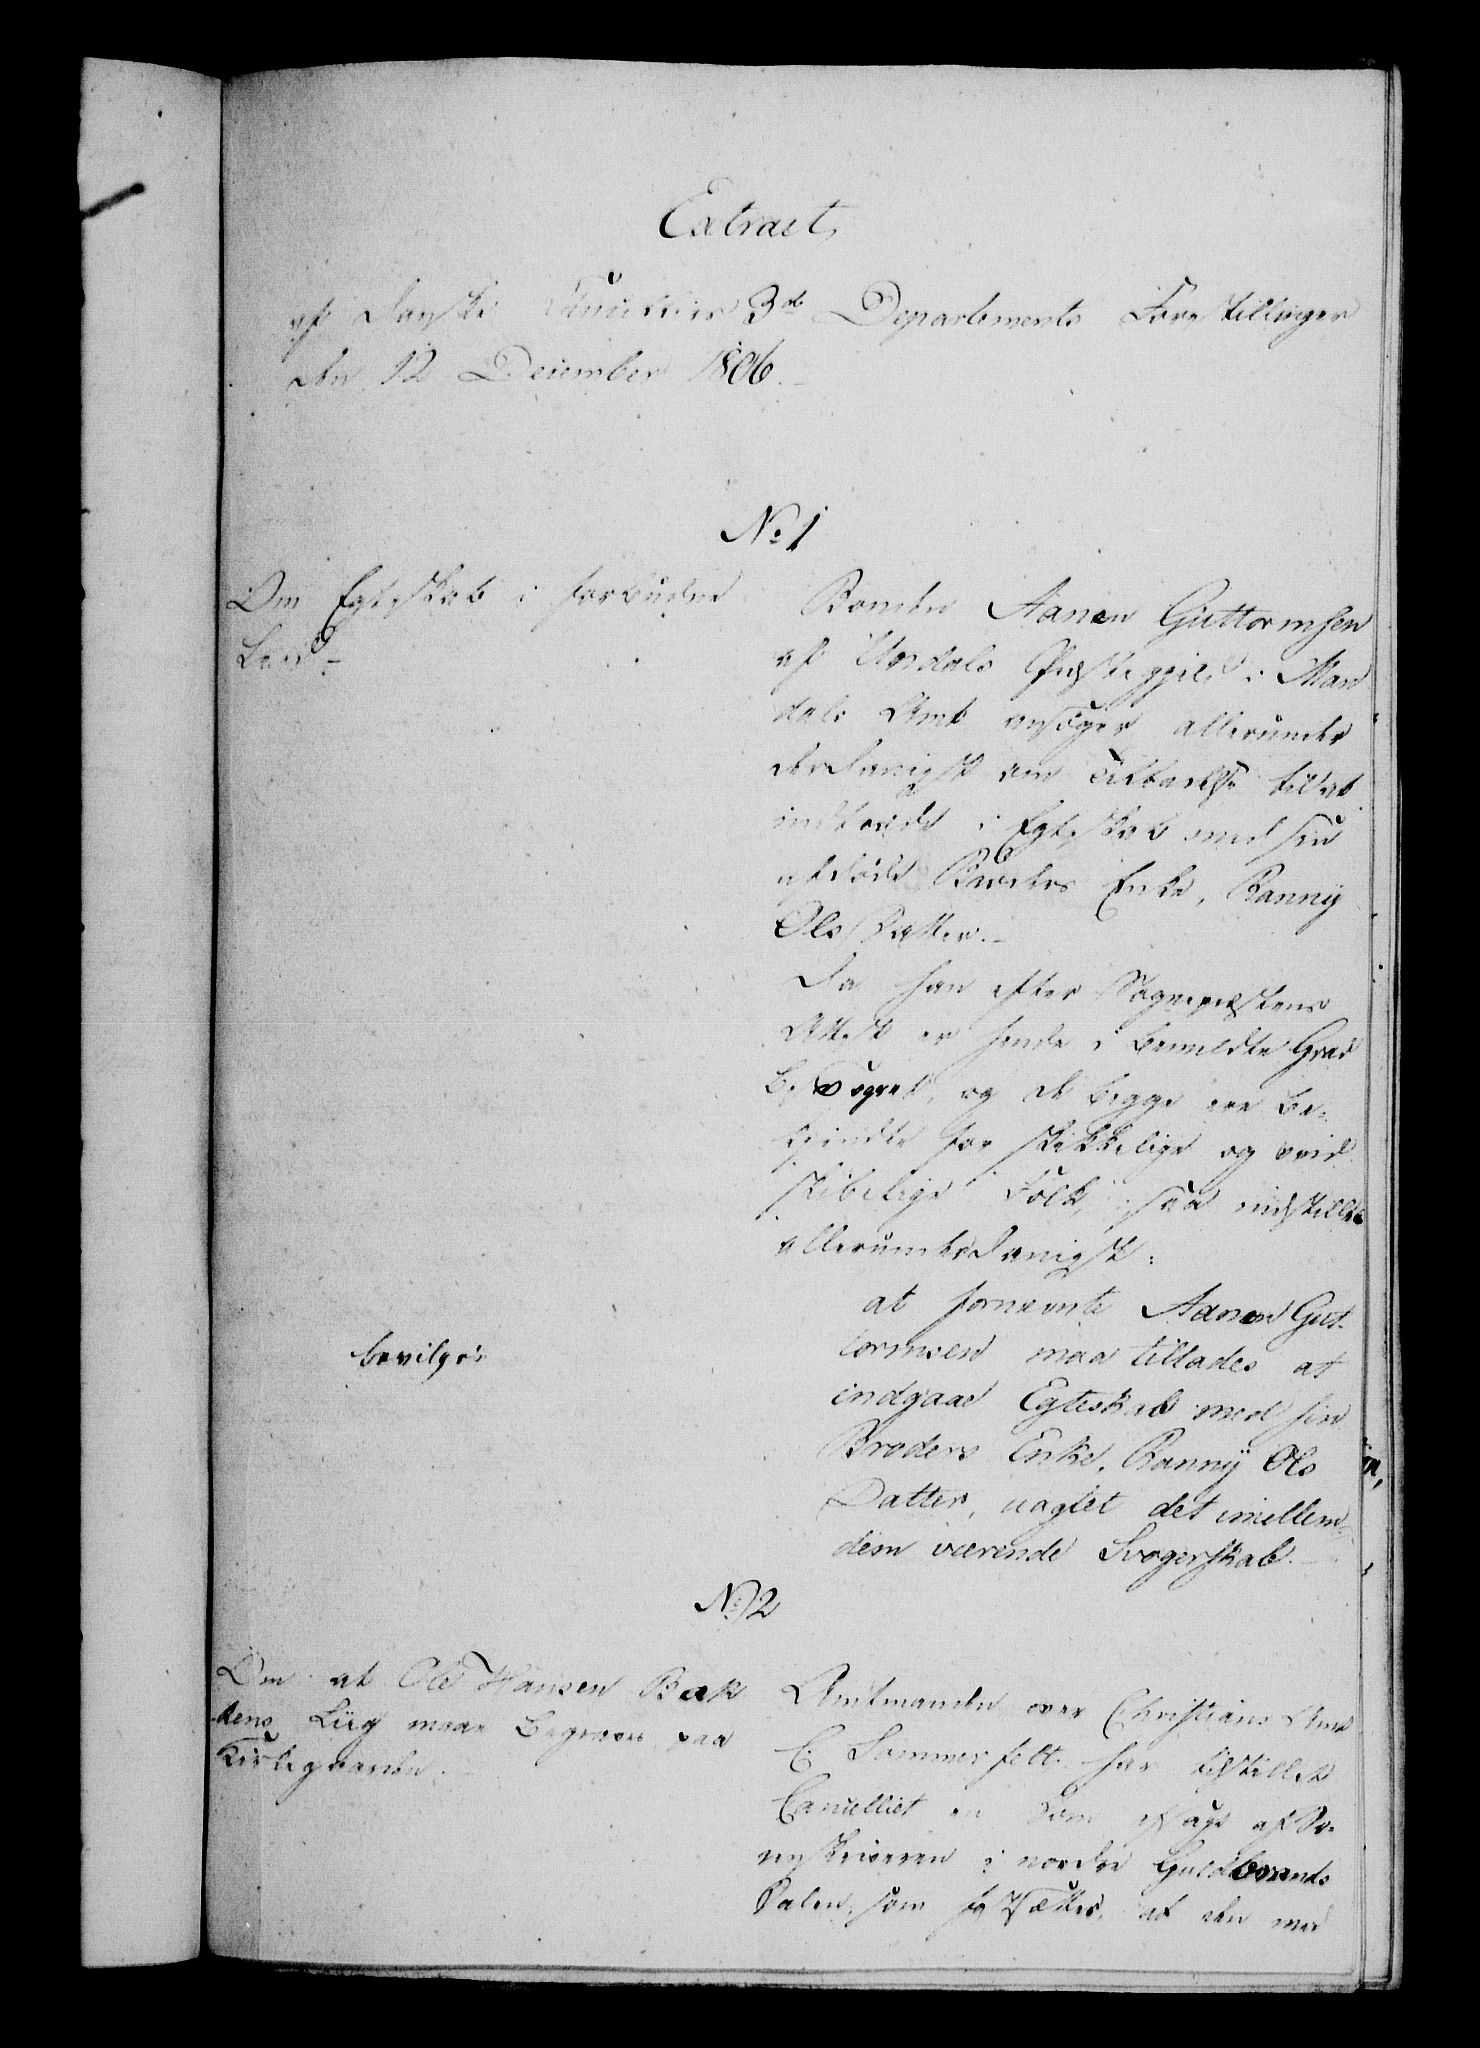 Extract
af Danske Cancellies 3die Departements Forestillinger
den 12 December 1806.
No 1
Om Egteskab i forbudne
Leed.
Bonden Aanen Guttormsen
af Undals Præstegjeld i Man
dals Amt ansøger allerunder
danigst om Tilladelse til at
indtræde i Egteskab med sin
afdøde Broders Enke, Ranny
Ols Datter.
Da han efter Sognepræstens
Attest er hende i bemeldte Grad
besvogret, og de begge ere be-
kiendte for skikkelige og vind
skibelige Folk, saa indstilles
allerunderdanigst:
at fornævnte Aanen Gut-
tormsen maa tillades at
indgaae Egteskab med sin
Broders Enke, Ranny Ols
Datter, uagtet det imellem
dem værende Svogerskab.
bevilges
No 2
Om at Ole Hansen Bak
kens Liig maae begraves paa
Kirkegaarden.
Amtmanden over Christians Amt
C. Sommerfelt har tilstillet
Cancelliet en Dom afsagt af So-
renskriveren i nordre Guldbrands
Dalen, som fastsætter, at den med